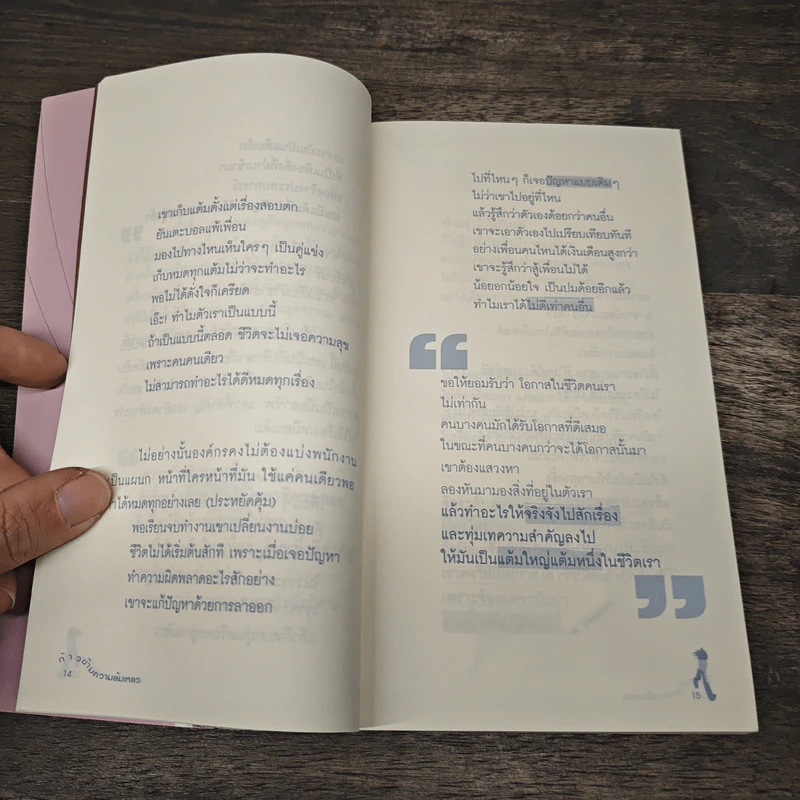 เขาเก็บแต้มตั้งแต่เรื่องสอบตก
ยันเตะบอลแพ้เพื่อน
มองไปทางไหนเห็นใครๆ เป็นคู่แข่ง
เก็บหมดทุกแต้มไม่ว่าจะทำอะไร
พอไม่ได้ดั่งใจก็เครียด
เอ๊ะ! ทำไมตัวเราเป็นแบบนี้
ถ้าเป็นแบบนี้ตลอด ชีวิตจะไม่เจอความสุข
เพราะคนคนเดียว
ไม่สามารถทำอะไรได้ดีหมดทุกเรื่อง
ไม่อย่างนั้นองค์กรคงไม่ต้องแบ่งพนักงาน
เป็นแผนก หน้าที่ใครหน้าที่มัน ใช้แค่คนเดียวพอ
ได้หมดทุกอย่างเลย (ประหยัดคุ้ม)
พอเรียนจบทำงานเขาเปลี่ยนงานบ่อย
ชีวิตไม่ได้เริ่มต้นสักที เพราะเมื่อเจอปัญหา
ทำความผิดพลาดอะไรสักอย่าง
เขาจะแก้ปัญหาด้วยการลาออก
ก้าวข้ามความล้มเหลว
14
ไปที่ไหนๆ ก็เจอปัญหาแบบเดิมๆ
ไม่ว่าเขาไปอยู่ที่ไหน
แล้วรู้สึกว่าตัวเองด้อยกว่าคนอื่น
เขาจะเอาตัวเองไปเปรียบเทียบทันที
อย่างเพื่อนคนไหนได้เงินเดือนสูงกว่า
เขาจะรู้สึกว่าสู้เพื่อนไม่ได้
น้อยอกน้อยใจ เป็นปมด้อยอีกแล้ว
ทำไมเราได้ไม่ดีเท่าคนอื่น
“
ขอให้ยอมรับว่า โอกาสในชีวิตคนเรา
ไม่เท่ากัน
คนบางคนมักได้รับโอกาสที่ดีเสมอ
ในขณะที่คนบางคนกว่าจะได้โอกาสนั้นมา
เขาต้องแสวงหา
ลองหันมามองสิ่งที่อยู่ในตัวเรา
แล้วทำอะไรให้จริงจังไปสักเรื่อง
และทุ่มเทความสำคัญลงไป
ให้มันเป็นแต้มใหญ่แต้มหนึ่งในชีวิตเรา
”
15